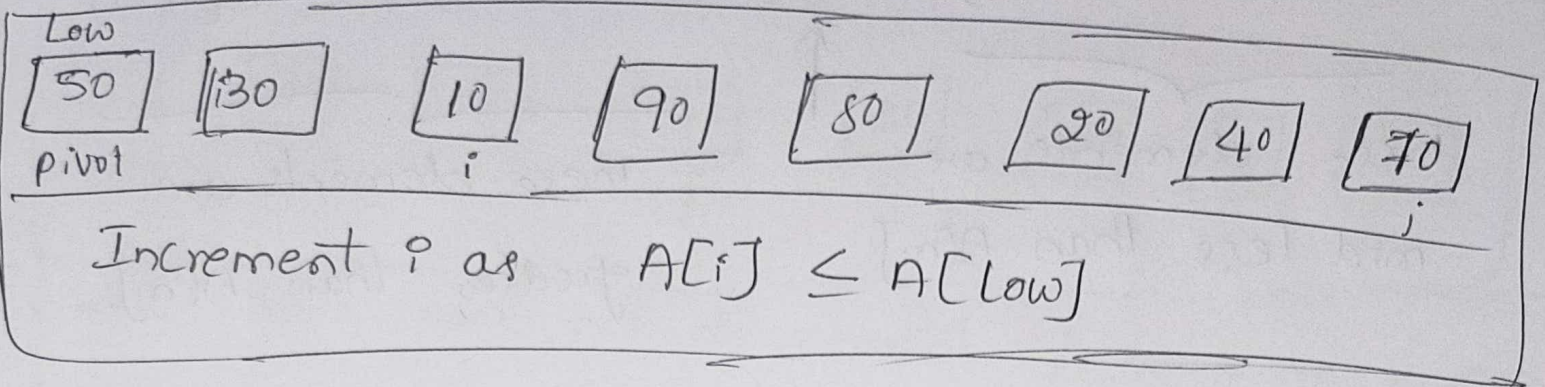 Low
50 30 10 90 80 20 40 70
pivot i j
Increment i as A[i] ≤ A[Low]